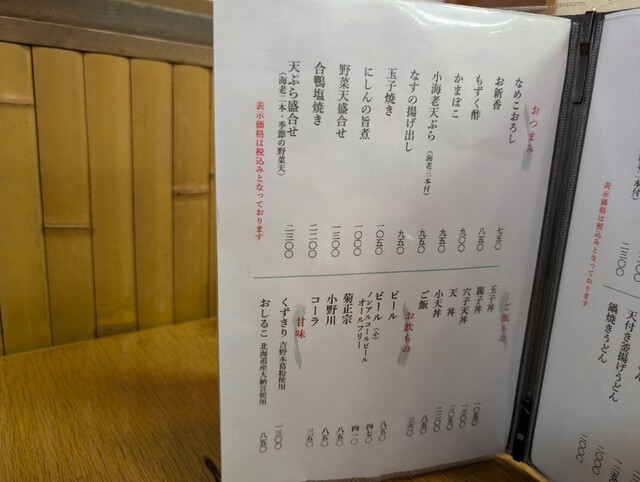 おつまみ
なめこおろし 七五〇
お新香 八五〇
もずく酢 九〇〇
かまぼこ 九五〇
小海老天ぷら（海老三本付） 九五〇
なすの揚げ出し 九五〇
玉子焼き 一〇五〇
にしんの旨煮 一〇〇〇
野菜天盛合せ 一三〇〇
合鴨塩焼き 二二〇〇
天ぷら盛合せ 二三〇〇
（海老二本・季節の野菜天）
表示価格は税込みとなっております
ご飯もの
玉子丼 一〇五〇
親子丼 一三〇〇
穴子天丼 二〇五〇
天丼
小天丼 八五〇
ご飯 三六〇
お飲もの
ビール 八五〇
ビール（小） 四七〇
ノンアルコールビール
オールフリー 四一〇
菊正宗 八五〇
小野川 八五〇
コーラ 三五〇
甘味
くずきり 吉野本葛粉使用 一三〇〇
おしるこ 北海道産大納言使用 八五〇
二三〇〇
表示価格は税込みとなっております
天付き釜揚げうどん
鍋焼きうどん